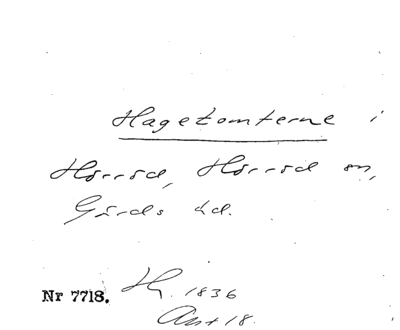 Hagetomterne i
Hörröd, Hörröd sn,
Gärds hd.
Nr 7718. H. 1836
Avt 18.